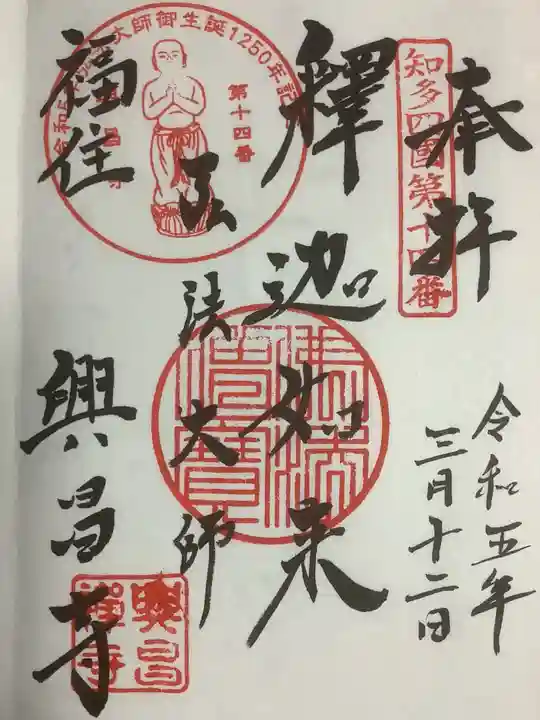 奉拝
知多四國第十四番
令和五年
三月十二日
釋迦如来
弘法大師
福住
興昌寺
大師御生誕1250年記
令和5
第十四番
佛法僧寶
興昌禅寺